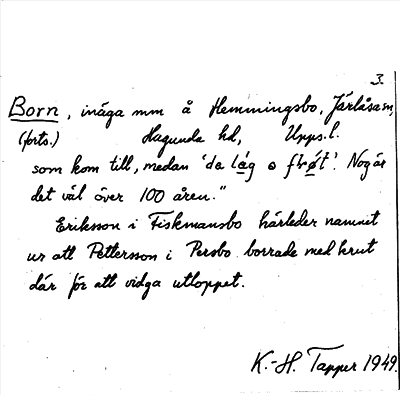 3.
Born, inäga mm å Hemmingsbo, Järlåsa sn,
(forts.) Hagunda hd, Upps. l.
som kom till, medan 'da låg o frøt'. Nog är
det väl över 100 åren."
Eriksson i Fiskmansbo härleder namnet
ur att Pettersson i Persbo borrade med krut
där för att vidga utloppet.
K.-H. Tapper 1949.